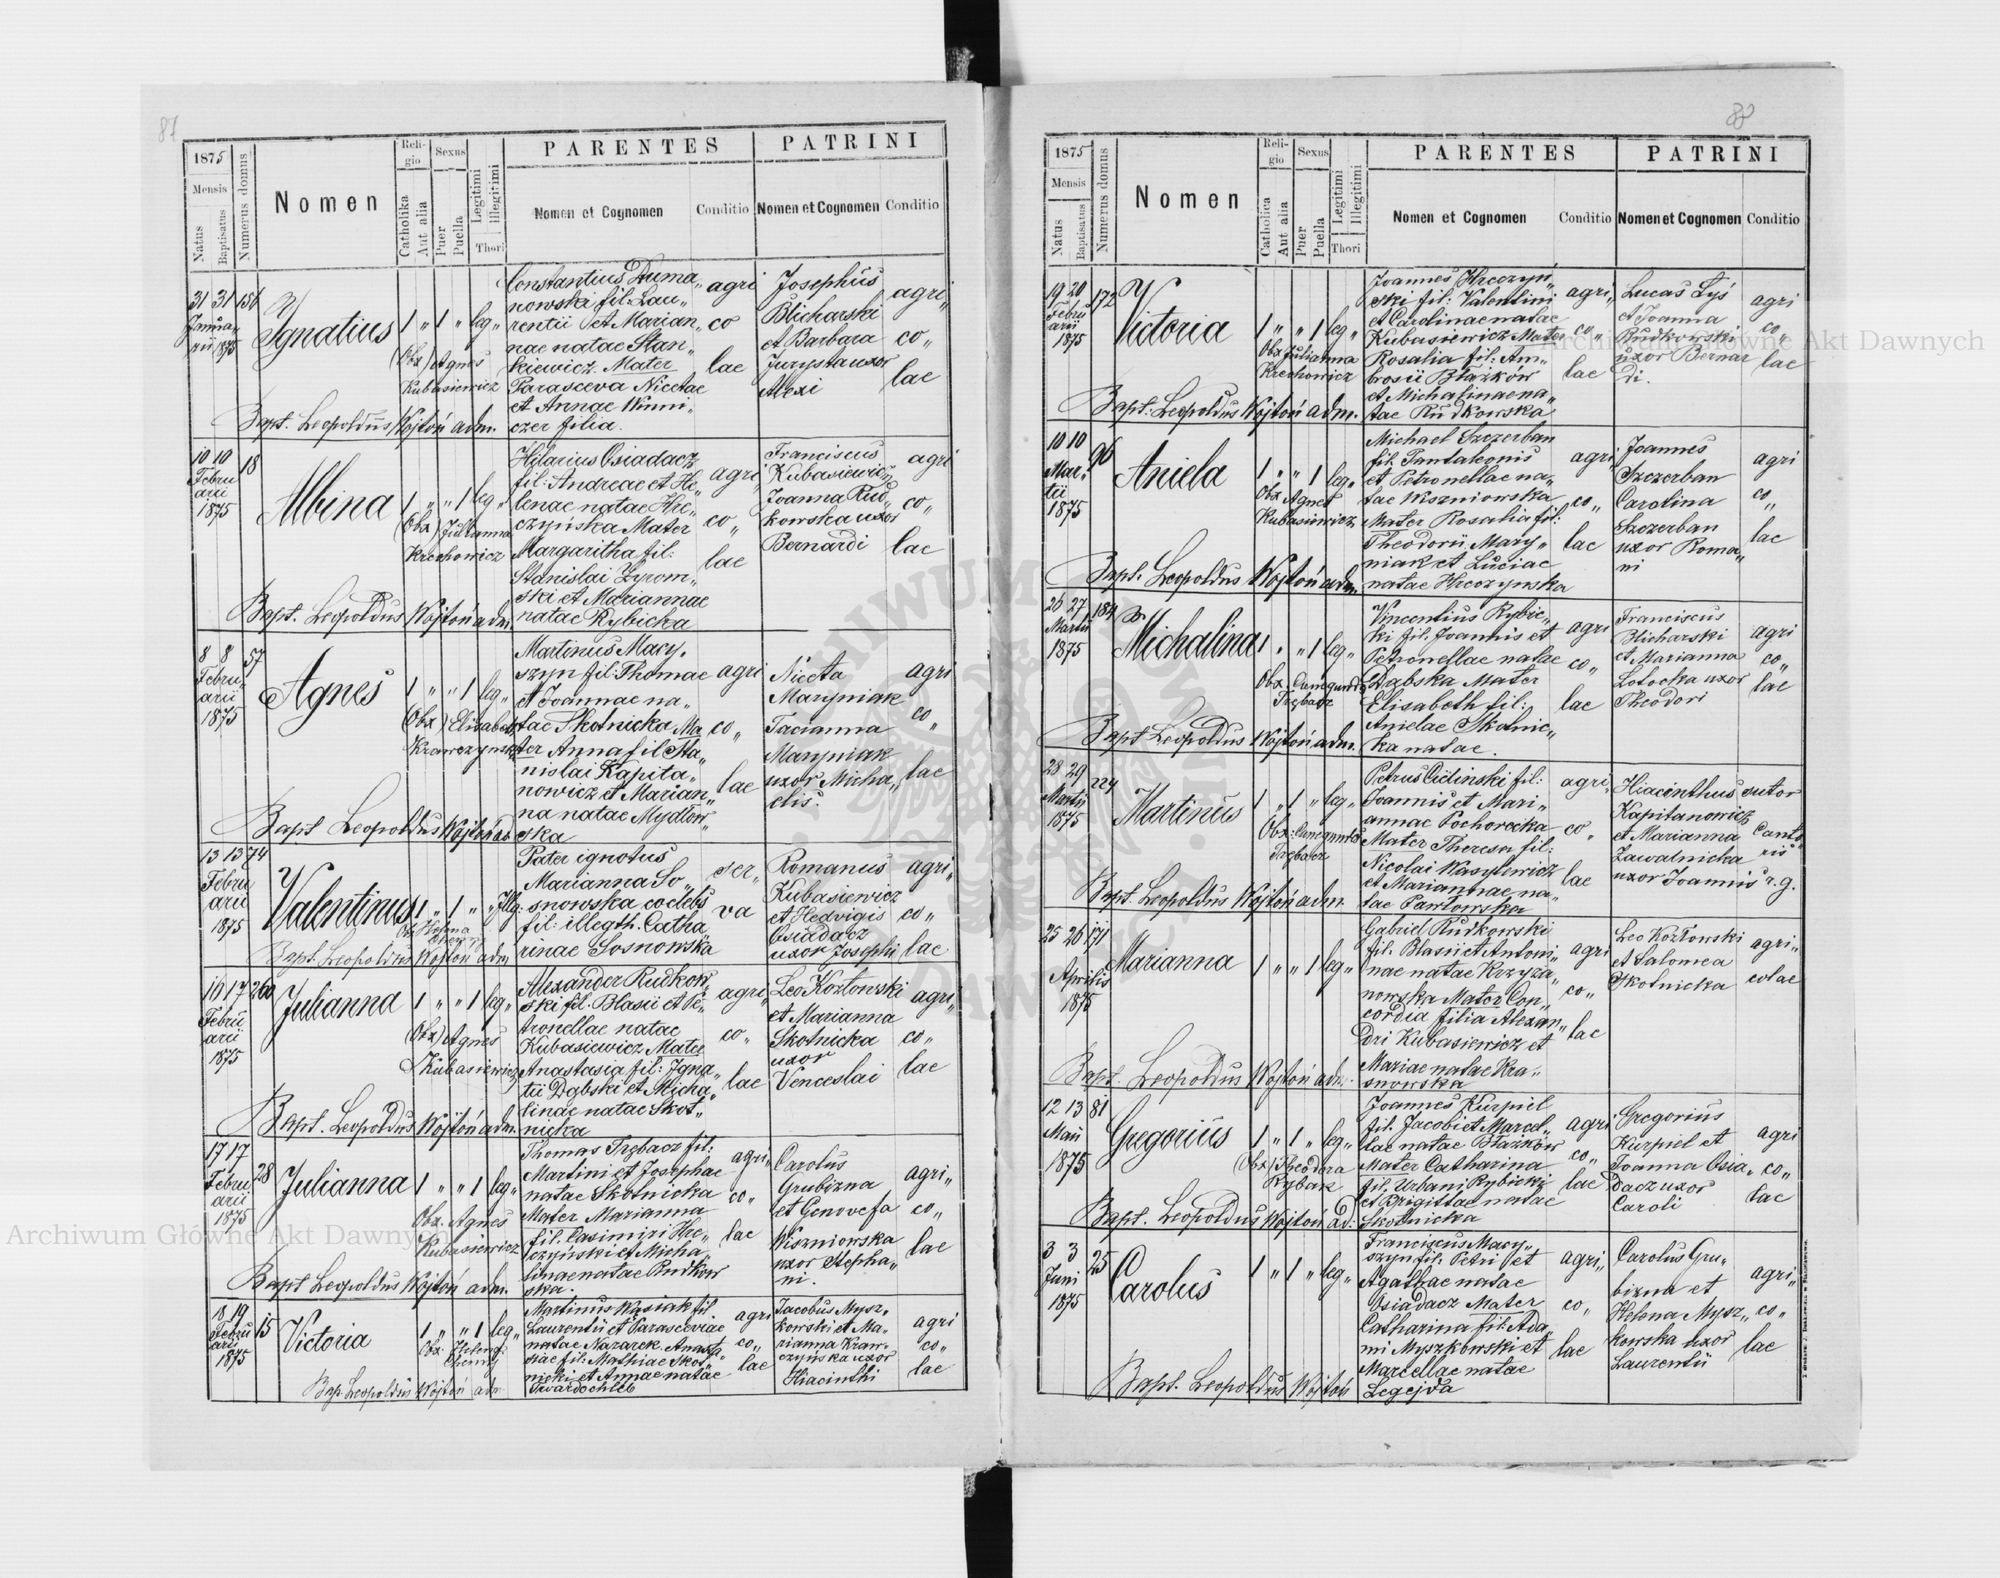 87
1875
Mensis
Natus
Baptisatus
Numerus domus
Nomen
Reli-
gio
Catholika
Aut alia
Sexus
Puer
Puella
Legitimi
Illegitimi
Thori
PARENTES
Nomen et Cognomen
Conditio
PATRINI
Nomen et Cognomen
Conditio
31 31 156
Janua„
rii 1875
Ignatius
1 „ 1 „ leg„
(Obx) Agnes
Kubasiewicz
Constantius Duma„
nowski fil: Lau„
rentii et Marian„
nae natae Stan„
kiewicz. Mater
Parasceva Nicetae
et Annae Winni„
czer filia.
agri
co
lae
Josephus
Blicharski
et Barbara
Jurysta uxor
Alexi
agri„
co„
lae
Bapt. Leopoldus Wojtoń adm.
10 10 18
Febru
arii
1875
Albina
1 „ „ 1 leg„
(Obx) Julianna
Krechowicz
Hilarius Osiadacz
fil: Andreae et He„
lenae natae Hre„
czyńska Mater
Margaritha fil:
Stanislai Zyrom„
ski et Mariannae
natae Rybicka
agri„
co„
lae
Franciscus
Kubasiewicz
Joanna Rud„
kowska uxor
Bernardi
agri
co„
lae
Bapt. Leopoldus Wojtoń adm.
8 8 57
Febru„
arii
1875
Agnes
1 „ „ 1 leg„
(Obx) Elisabeth
Krawczynska
Martinus Macy„
szyn fil: Thomae
et Joannae na„
tae Skotnicka Ma
ter Anna fil Sta„
nislai Kapita„
nowicz et Marian„
na natae Mydłow„
ska
agri
co„
lae
Niceta
Maryniak
Tacianna
Maryniak
uxor Micha„
elis.
agri
co„
lae
Bapt Leopoldus Wojtoń ad
13 13 74
Febru
arii
1875
Valentinus
1 „ 1 „ „ Illg.
Pater ignotus
Marianna So„
snowska coelebs
fil: illegth. Catha„
rinae Sosnowska
ser„
va
Romanus
Kubasiewicz
et Hedvigis
Osiadacz
uxor Josephi
agri„
co„
lae
Bapt. Leopoldus Wojtoń adm
16 17 200
Febru
arii
1875
Julianna
1 „ „ 1 leg„
(Obx) Agnes
Kubasiewicz
Alexander Rudkow„
ski fil. Blasii et Pe„
tronellae natae
Kubasiewicz Mater
Anastasia fil: Igna„
tii Dąbski et Micha„
linae natae Skot„
nicka
agri„
co„
lae
Leo Kozłowski
et Marianna
Skotnicka
uxor
Venceslai
agri„
co„
lae
Bapt. Leopoldus Wojtoń adm.
17 17 28
Febru
arii
1875
Julianna
1 „ „ 1 leg„
Obx. Agnes
Kubasiewicz
Thomas Trębacz fil:
Martini et Josephae
natae Skotnicka
Mater Marianna
fil. Casimiri Hre„
czyński et Micha„
linae natae Rudkow
ska.
agri„
co„
lae
Carolus
Grubizna
et Genovefa
Wiszniowska
uxor Stepha„
ni.
agri„
co„
lae
Bapt Leopoldus Wojtoń adm.
18 19 15
Febru
arii
1875
Victoria
1 „ „ 1 leg„
Obx. Helena
Cherny
Martinus Wąsiak fil.
Laurentii et Parasceviae
natae Nazarek. Anasta„
siae fil: Mathiae Skot„
nicki et Annae natae
Twardochleb
agri
co„
lae
Jacobus Mysz„
kowski et Ma„
rianna Kraw„
czyńska uxor
Hiacinthi
agri
co„
lae
Bap. Leopoldus Wojtoń adm
88
1875
Mensis
Natus
Baptisatus
Numerus domus
Nomen
Reli-
gio
Catholica
Aut alia
Sexus
Puer
Puella
Legitimi
Illegitimi
Thori
PARENTES
Nomen et Cognomen
Conditio
PATRINI
Nomen et Cognomen
Conditio
19 20 172
Febru
arii
1875
Victoria
1 „ „ 1 leg„
Obx Julianna
Krechowicz
Joannes Hreczyń„
ski fil: Valentini
et Carolinae natae
Kubasiewicz Mater
Rosalia fil: Am„
brosii Błażków
et Michalinae na„
tae Rudkowska
agri„
co„
lae
Lucas Lyś
et Joanna
Rudkowski
uxor Bernar
di.
agri
co„
lae
Bapt: Leopoldus Wojtoń adm.
10 10 96
Mar„
tii
1875
Aniela
1 „ „ 1 leg„
Obx Agnes
Kubasiewicz
Michael Szczerban
fil: Pantaleonis
et Petronellae na„
tae Wiszniowska
Mater Rosalia fil:
Theodorii Mary„
niak et Luciae
natae Hreczynska
agri
co„
lae
Joannes
Szczerban
Carolina
Szczerban
uxor Roma„
ni
agri
co„
lae
Bapt. Leopoldus Wojtoń adm.
26 27 184
Martii
1875
Michalina
1 „ „ 1 leg„
Obx. Cunegunda
Trębacz
Vincentius Rybic„
ki fil. Joannis et
Petronellae natae
Dąbska Mater
Elisabeth fil:
Anielae Skotnic„
ka natae.
agri
co„
lae
Franciscus
Blicharski
et Marianna
Lotocka uxor
Theodori
agri
co„
lae
Bapt Leopoldus Wojtoń adm.
28 29 224
Martii
1875
Martinus
1 „ 1 „ leg„
Obx: Cunegunda
Trębacz
Petrus Ciclinski fil:
Joannis et Mari„
annae Pochorecka
Mater Theresa fil:
Nicolai Wasylewicz
et Mariannae na„
tae Pawłowska
agri„
co„
lae
Hiacinthus
Kapitanowicz
et Marianna
Zawalnicka
uxor Joannis
sutor
Canto
ris
r. g.
Bapt. Leopoldus Wojtoń adm
25 26 171
Aprilis
1875
Marianna
1 „ „ 1 leg„
Gabriel Rudkowski
fil. Blasii et Antoni„
nae natae Krzyża„
nowska Mater Con„
cordia filia Alexan„
dri Kubasiewicz et
Mariae natae Kra„
snowska
agri
co„
lae
Leo Kozłowski
et Salomea
Skotnicka
agri„
colae
Bapt. Leopoldus Wojtoń adm.
12 13 81
Maii
1875
Gregorius
1 „ 1 „ leg„
(Obx) Theodora
Rybak
Joannes Kurpiel
fil. Jacobi et Marcel„
lae natae Błażków
Mater Catharina
fil. Urbani Rybicki
et Brigittae natae
Skotnicka
agri
co„
lae
Gregorius
Kurpiel et
Joanna Osia„
dacz uxor
Caroli
agri
co„
lae
Bapt. Leopoldus Wojtoń ad:
3 3 25
Juni
1875
Carolus
1 „ 1 „ leg„
Franciscus Macy„
szyn fil: Petri et
Agathae natae
Osiadacz Mater
Catharina fil: Ada„
mi Myszkowski et
Marcellae natae
Legejda
agri„
co„
lae
Carolus Gru„
bizna et
Helena Mysz„
kowska uxor
Laurentii
agri„
co„
lae
Bapt. Leopoldus Wojtoń
Archiwum Główne Akt Dawnych
Archiwum Główne Akt Dawnych